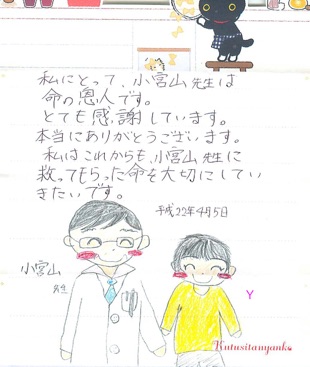 私にとって、小宮山先生は
命の恩人です。
とても感謝しています。
本当にありがとうございます。
私はこれからも、小宮山先生に
救ってもらった命を大切にしてい
きたいです。
平成22年4月5日
小宮山
先生
Y
Kutusitanyanko